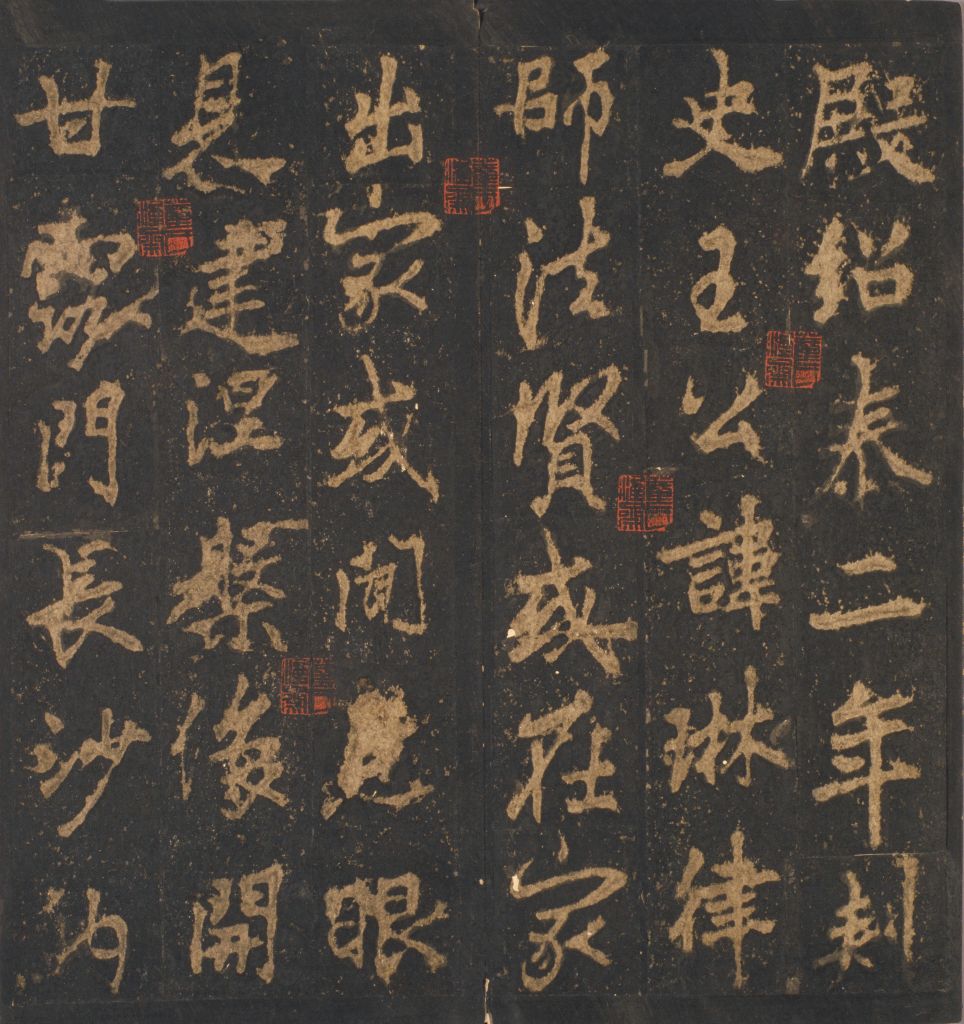 殿紹泰二年刾
史王公諱琳律
師法賢或在家
出家或聞見眼
見建涅槃後開
甘露門長沙内